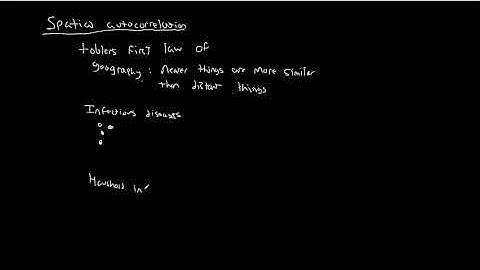 Spatial autocorrelation
toblers first law of
geography : Nearer things are more similar
than distant things
Infectious diseases
In